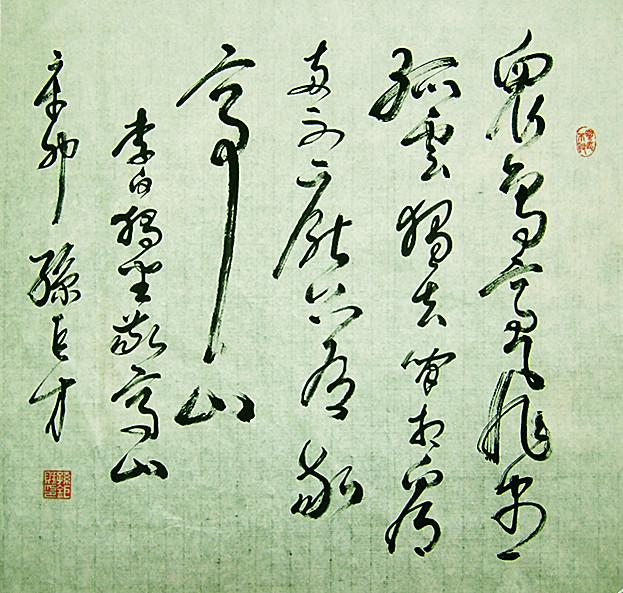 眾鳥高飛盡
孤雲獨去閒相看
兩不厭只有敬
亭山
李白獨坐敬亭山
辛卯 孫巨才